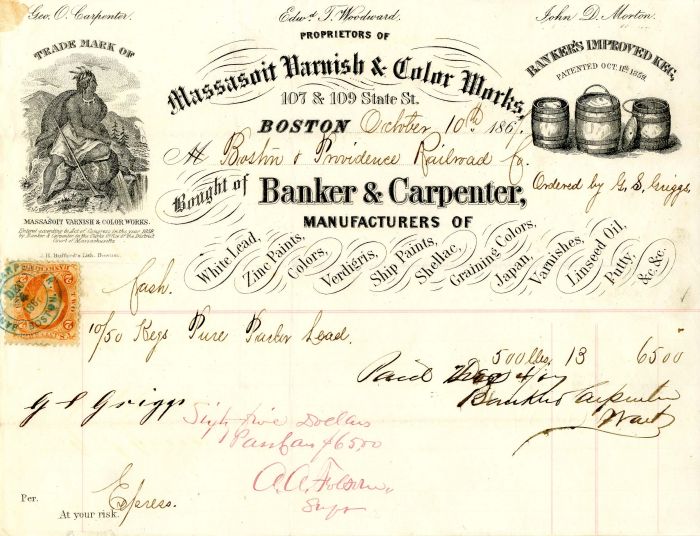 Geo. O. Carpenter.
Edwd. T. Woodward.
John D. Morton.
PROPRIETORS OF
Massasoit Varnish & Color Works,
107 & 109 State St.
TRADE MARK OF
MASSASOIT VARNISH & COLOR WORKS.
Entered according to Act of Congress in the year 1859
by Banker & Carpenter in the Clerks Office of the District
Court of Massachusetts
J. H. Bufford's Lith. Boston.
BANKER'S IMPROVED KEG,
PATENTED OCT. 11th 1859.
BOSTON October 10th 1867.
M Boston & Providence Railroad Co.
Ordered by G. S. Griggs
Bought of Banker & Carpenter,
MANUFACTURERS OF
White Lead,
Zinc Paints,
Colors,
Verdigris,
Ship Paints,
Shellac,
Graining Colors,
Japan,
Varnishes,
Linseed Oil,
Putty,
&c. &c.
Cash.
10/50 Kegs Pure Lead.
500 lbs. 13 6500
Paid
Banker & Carpenter
G S Griggs
Sixty five Dollars
$6500
A. A. Folsom,
Supt
Per. Express.
At your risk.
TWO